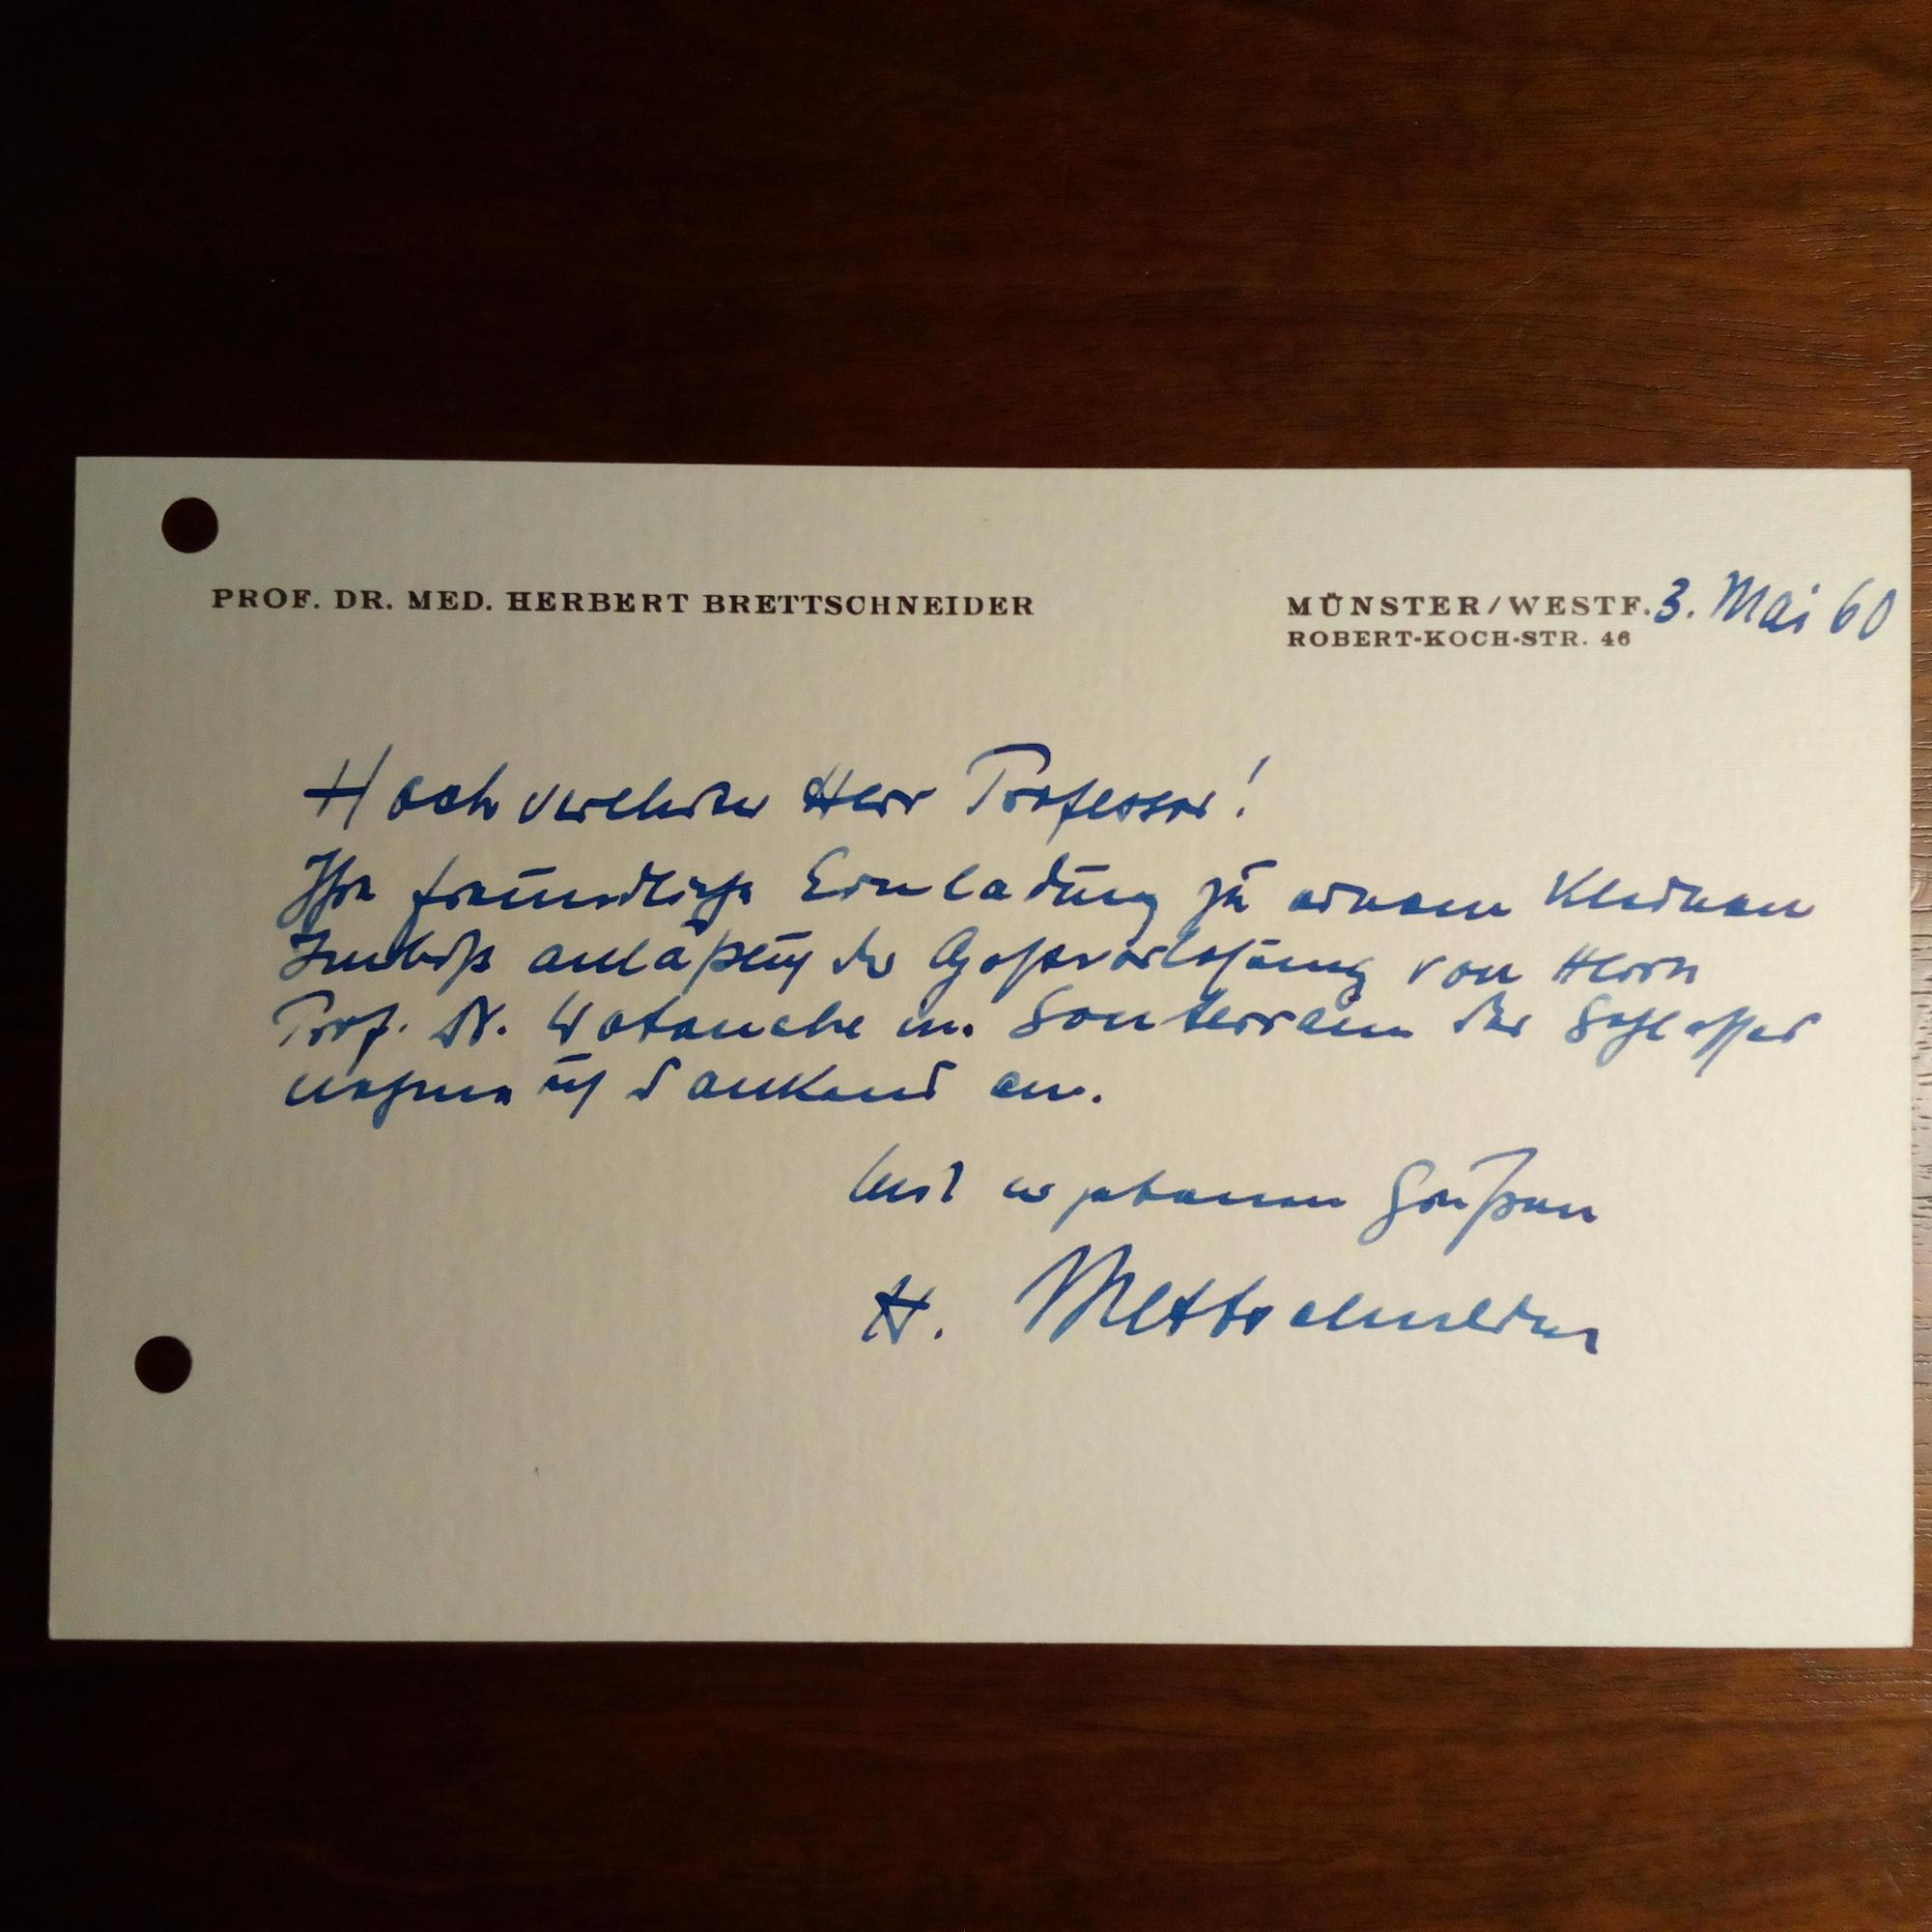 PROF. DR. MED. HERBERT BRETTSCHNEIDER
MÜNSTER/WESTF. 3. Mai 60
ROBERT-KOCH-STR. 46
Hochverehrter Herr Professor!
Ihre freundliche Einladung zu einem kleinen
Imbiß anläßlich der Gastvorlesung von Herrn
Prof. Dr. Watanabe im Souterrain des Schlosses
nehme ich dankend an.
Mit ergebenen Grüßen
H. Brettschneider